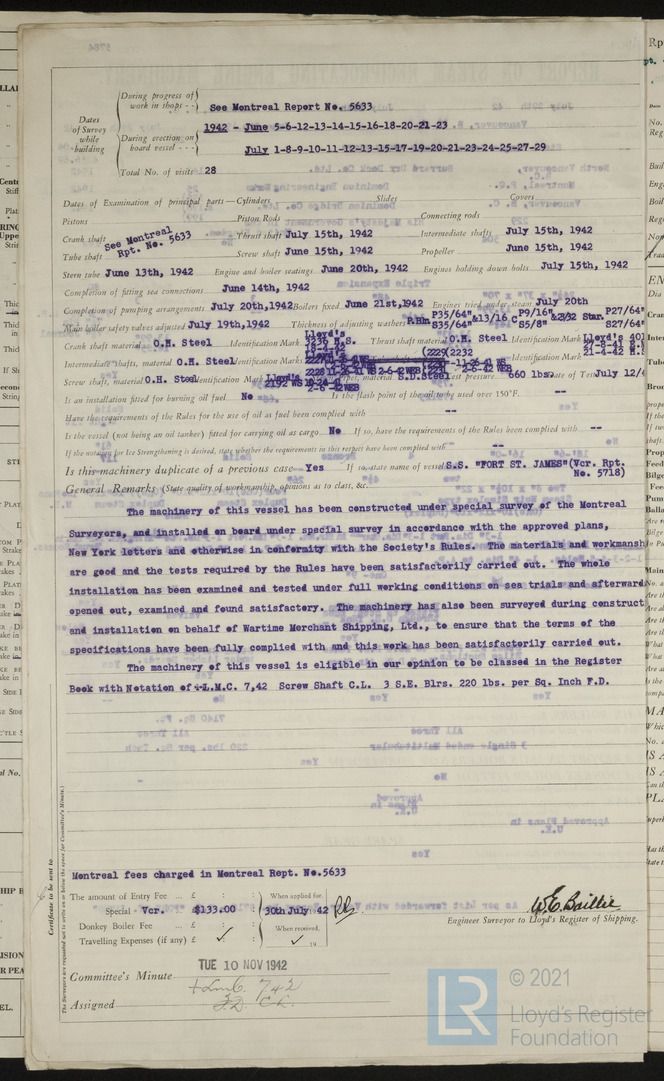 During progress of
work in shops - - See Montreal Report No. 5633
Dates
of Survey
while
building
1942 - June 5-6-12-13-14-15-16-18-20-21-23
During erection on
board vessel - - - July 1-8-9-10-11-12-13-15-17-19-20-21-23-24-25-27-29
Total No. of visits 28
Dates of Examination of principal parts—Cylinders Slides Covers
Pistons Piston Rods Connecting rods
Crank shaft See Montreal Rpt. No. 5633 Thrust shaft July 15th, 1942 Intermediate shafts July 15th, 1942
Tube shaft Screw shaft June 15th, 1942 Propeller June 15th, 1942
Stern tube June 13th, 1942 Engine and boiler seatings June 20th, 1942 Engines holding down bolts July 15th, 1942
Completion of fitting sea connections June 14th, 1942
Completion of pumping arrangements July 20th, 1942 Boilers fixed June 21st, 1942 Engines tried under steam July 20th
Main boiler safety valves adjusted July 19th, 1942 Thickness of adjusting washers P35/64" S35/64" &13/16 C P9/16" S5/8" Star. P27/64" S27/64"
Crank shaft material O.H. Steel Identification Mark Lloyd's 3236 H.S. 18-4-42 Thrust shaft material O.H. Steel Identification Mark Lloyd's 21-4-42
Intermediate shafts, material O.H. Steel Identification Marks
Screw shaft, material O.H. Steel Identification Mark Lloyd's 2192 S.D. Steel Test pressure 660 lbs. Date of Test July 12/
Is an installation fitted for burning oil fuel No Is the flash point of the oil to be used over 150°F. --
Have the requirements of the Rules for the use of oil as fuel been complied with --
Is the vessel (not being an oil tanker) fitted for carrying oil as cargo No If so, have the requirements of the Rules been complied with --
If the notation for Ice Strengthening is desired, state whether the requirements in this respect have been complied with --
Is this machinery duplicate of a previous case Yes If so, state name of vessel S.S. "FORT ST. JAMES" (Vcr. Rpt. No. 5718)
General Remarks (State quality of workmanship, opinions as to class, &c.
The machinery of this vessel has been constructed under special survey of the Montreal
Surveyors, and installed on board under special survey in accordance with the approved plans,
New York letters and otherwise in conformity with the Society's Rules. The materials and workmansh
are good and the tests required by the Rules have been satisfactorily carried out. The whole
installation has been examined and tested under full working conditions on sea trials and afterward
opened out, examined and found satisfactory. The machinery has also been surveyed during construct
and installation on behalf of Wartime Merchant Shipping, Ltd., to ensure that the terms of the
specifications have been fully complied with and this work has been satisfactorily carried out.
The machinery of this vessel is eligible in our opinion to be classed in the Register
Book with Notation of +L.M.C. 7,42 Screw Shaft C.L. 3 S.E. Blrs. 220 lbs. per Sq. Inch F.D.
Montreal fees charged in Montreal Rept. No.5633
The amount of Entry Fee ... £ : : When applied for,
Special - Vcr. $133.00 : 30th July 42
Donkey Boiler Fee ... £ : : When received,
Travelling Expenses (if any) £ ✓ : ✓ 19
W.E. Baillie
Engineer Surveyor to Lloyd's Register of Shipping.
Committee's Minute TUE 10 NOV 1942
Assigned +LMC 7 42
F.D. C.L.
Certificate to be sent to
(The Surveyors are requested not to write on or below the space for Committee's Minute.)
LR © 2021
Lloyd's Register
Foundation